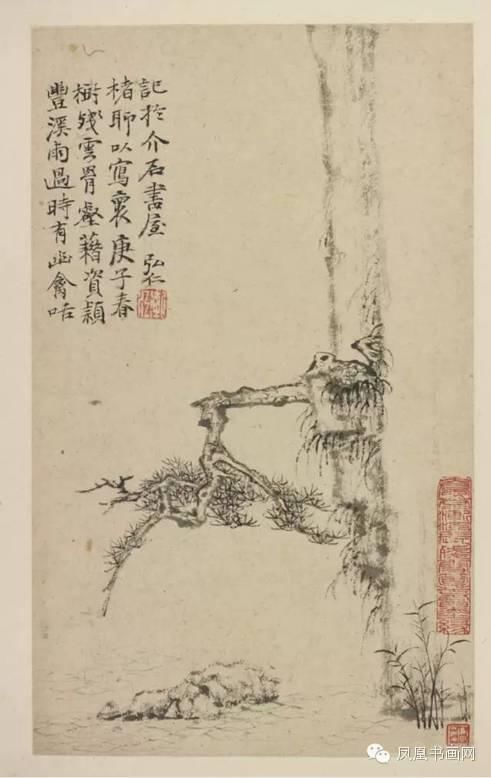 豐溪雨過時有幽禽咕
樹殘雲骨壑藉資穎
楮聊以寫褱庚子春
記於介石書屋 弘仁
凤凰书画网